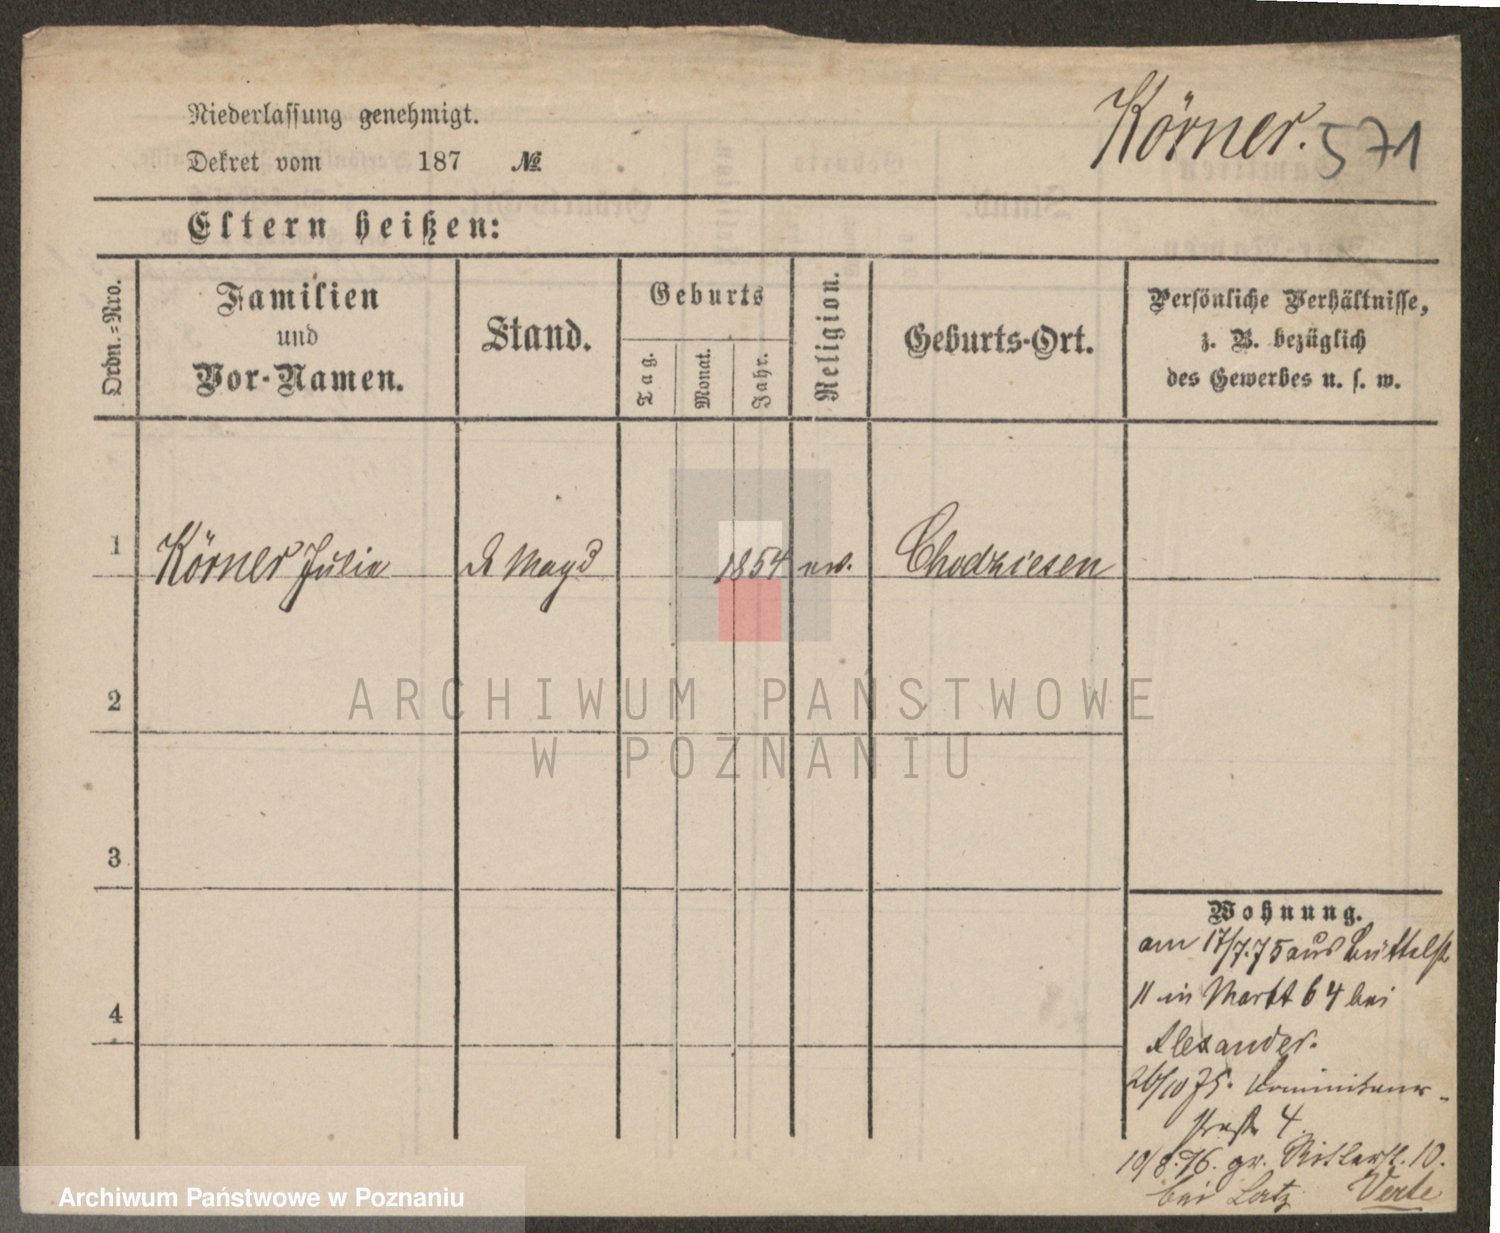 Niederlassung genehmigt.
Körner. 571
Dekret vom 187 №
Eltern heißen:
Ordn.=Nro.
Familien
und
Vor-Namen.
Stand.
Geburts
Tag.
Monat.
Jahr.
Religion.
Geburts-Ort.
Persönliche Verhältnisse,
z. B. bezüglich
des Gewerbes u. s. w.
1 Körner Julie Magd 1854 Chodziesen
2
3
4
Wohnung.
am 17/7.75 aus Büttelst
11 in Markt 64 bei
Alexander.
26/10 75. Dominikaner-
straße 4.
19/8.76. gr. Ritterst. 10.
bei Verte
ARCHIWUM PAŃSTWOWE
W POZNANIU
Archiwum Państwowe w Poznaniu